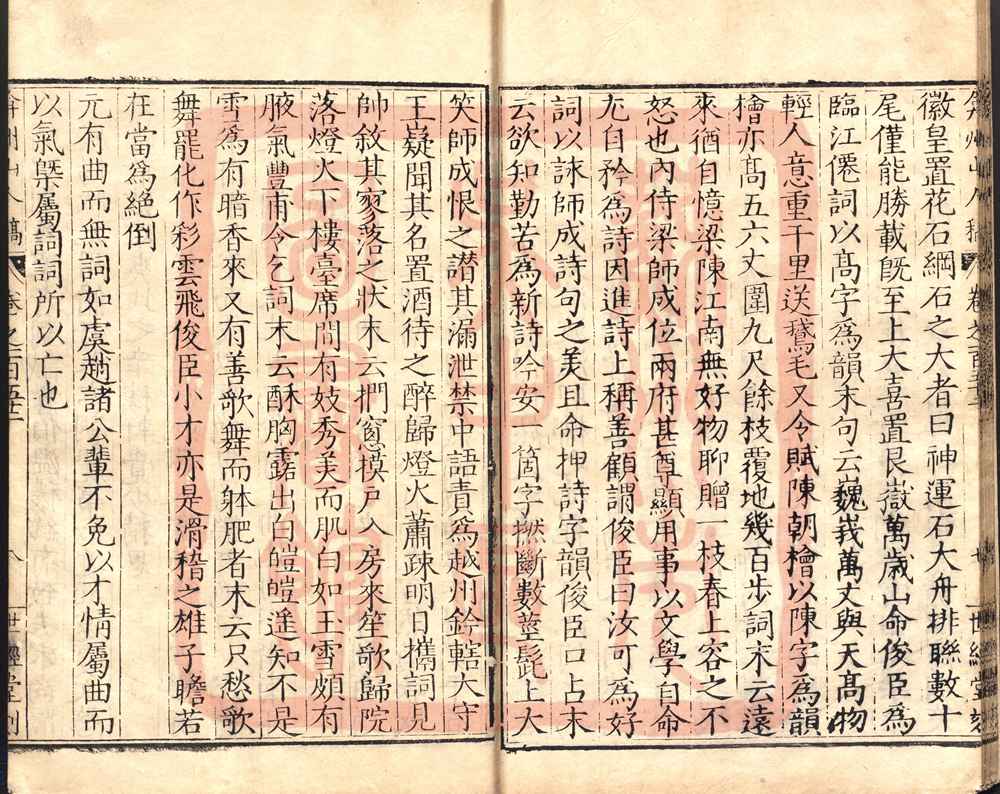 弇州山人稿 卷之百五十 世經堂刻
徽皇置花石綱石之大者曰神運石大舟排聯數十
尾僅能勝載旣至上大喜置艮嶽萬歲山命俊臣爲
臨江僊詞以高字爲韻末句云巍峩萬丈與天高物
輕人意重千里送鵞毛又令賦陳朝檜以陳字爲韻
檜亦高五六丈圍九尺餘枝覆地幾百步詞末云遠
來猶自憶梁陳江南無好物聊贈一枝春上容之不
怒也內侍梁師成位兩府甚尊顯用事以文學自命
尢自矜爲詩因進詩上稱善顧謂俊臣曰汝可爲好
詞以詠師成詩句之美且命押詩字韻俊臣口占末
云欲知勤苦爲新詩吟安一箇字撚斷數莖髭上大
笑師成恨之譖其漏泄禁中語責爲越州鈐轄大守
王嶷聞其名置酒待之醉歸燈火蕭疎明日攜詞見
帥敘其寥落之狀末云捫窻摸戸入房來笙歌歸院
落燈火下樓臺席間有妓秀美而肌白如玉雪頗有
腋氣豐甫令乞詞末云酥胸露出白皚皚遥知不是
雪爲有暗香來又有善歌舞而躰肥者末云只愁歌
舞罷化作彩雲飛俊臣小才亦是滑稽之雄子瞻若
在當爲絕倒
元有曲而無詞如虞趙諸公輩不免以才情屬曲而
以氣槩屬詞詞所以亡也
弇州山人稿 卷之百五十 八 世經堂刻